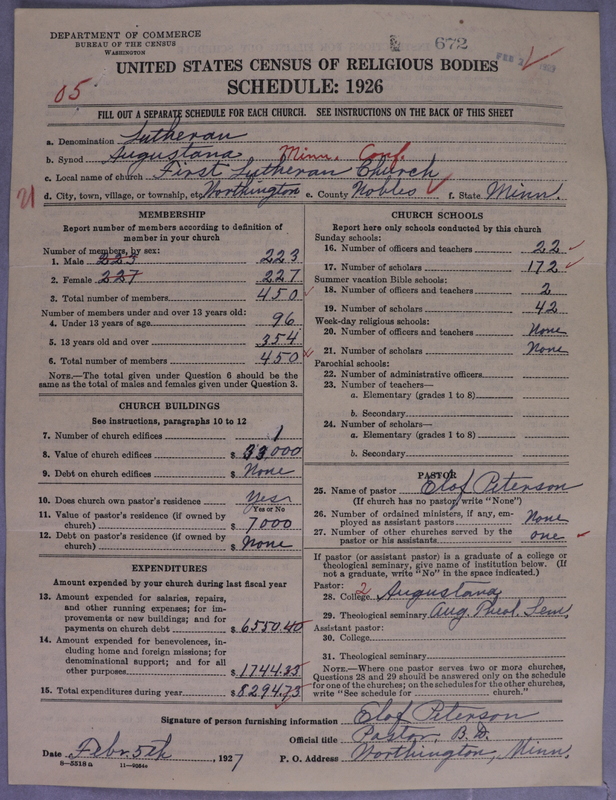 DEPARTMENT OF COMMERCE
BUREAU OF THE CENSUS
WASHINGTON
672
FEB
UNITED STATES CENSUS OF RELIGIOUS BODIES
SCHEDULE: 1926
05
FILL OUT A SEPARATE SCHEDULE FOR EACH CHURCH. SEE INSTRUCTIONS ON THE BACK OF THIS SHEET
a. Denomination Lutheran
b. Synod Augustana, Minn. Conf.
c. Local name of church First Lutheran Church
21
d. City, town, village, or township, etc. Worthington e. County Nobles f. State Minn.
MEMBERSHIP
Report number of members according to definition of
member in your church
Number of members, by sex:
1. Male 223 223
2. Female 227 227
3. Total number of members 450
Number of members under and over 13 years old:
4. Under 13 years of age 96
5. 13 years old and over 354
6. Total number of members 450
NOTE.—The total given under Question 6 should be
same as the total of males and females given under Question 3.
CHURCH BUILDINGS
See instructions, paragraphs 10 to 12
7. Number of church edifices 1
8. Value of church edifices $ 33,000
9. Debt on church edifices $ None
10. Does church own pastor's residence Yes
Yes or No
11. Value of pastor's residence (if owned by
church) $ 7000
12. Debt on pastor's residence (if owned by
church) $ None
EXPENDITURES
Amount expended by your church during last fiscal year
13. Amount expended for salaries, repairs,
and other running expenses; for im-
provements or new buildings; and for
payments on church debt $ 6550.40
14. Amount expended for benevolences, in-
cluding home and foreign missions; for
denominational support; and for all
other purposes $ 1744.33
15. Total expenditures during year $ 8294.73
CHURCH SCHOOLS
Report here only schools conducted by this church
Sunday schools:
16. Number of officers and teachers 22
17. Number of scholars 172
Summer vacation Bible schools:
18. Number of officers and teachers 2
19. Number of scholars 42
Week-day religious schools:
20. Number of officers and teachers None
21. Number of scholars None
Parochial schools:
22. Number of administrative officers
23. Number of teachers—
a. Elementary (grades 1 to 8)
b. Secondary
24. Number of scholars—
a. Elementary (grades 1 to 8)
b. Secondary
PASTOR
25. Name of pastor Elof Peterson
(If church has no pastor, write "None")
26. Number of ordained ministers, if any, em-
ployed as assistant pastors None
27. Number of other churches served by the
pastor or his assistants one
If pastor (or assistant pastor) is a graduate of a college or
theological seminary, give name of institution below. (If
not a graduate, write "No" in the space indicated.)
Pastor:
28. College 2 Augustana
29. Theological seminary Aug. Theol. Sem.
Assistant pastor:
30. College
31. Theological seminary
NOTE.—Where one pastor serves two or more churches,
Questions 28 and 29 should be answered only on the schedule
for one of the churches; on the schedules for the other churches,
write "See schedule for church."
Signature of person furnishing information Elof Peterson
Official title Pastor, B.D.
Date Febr 5th, 1927 P. O. Address Worthington, Minn.
8—5518 a